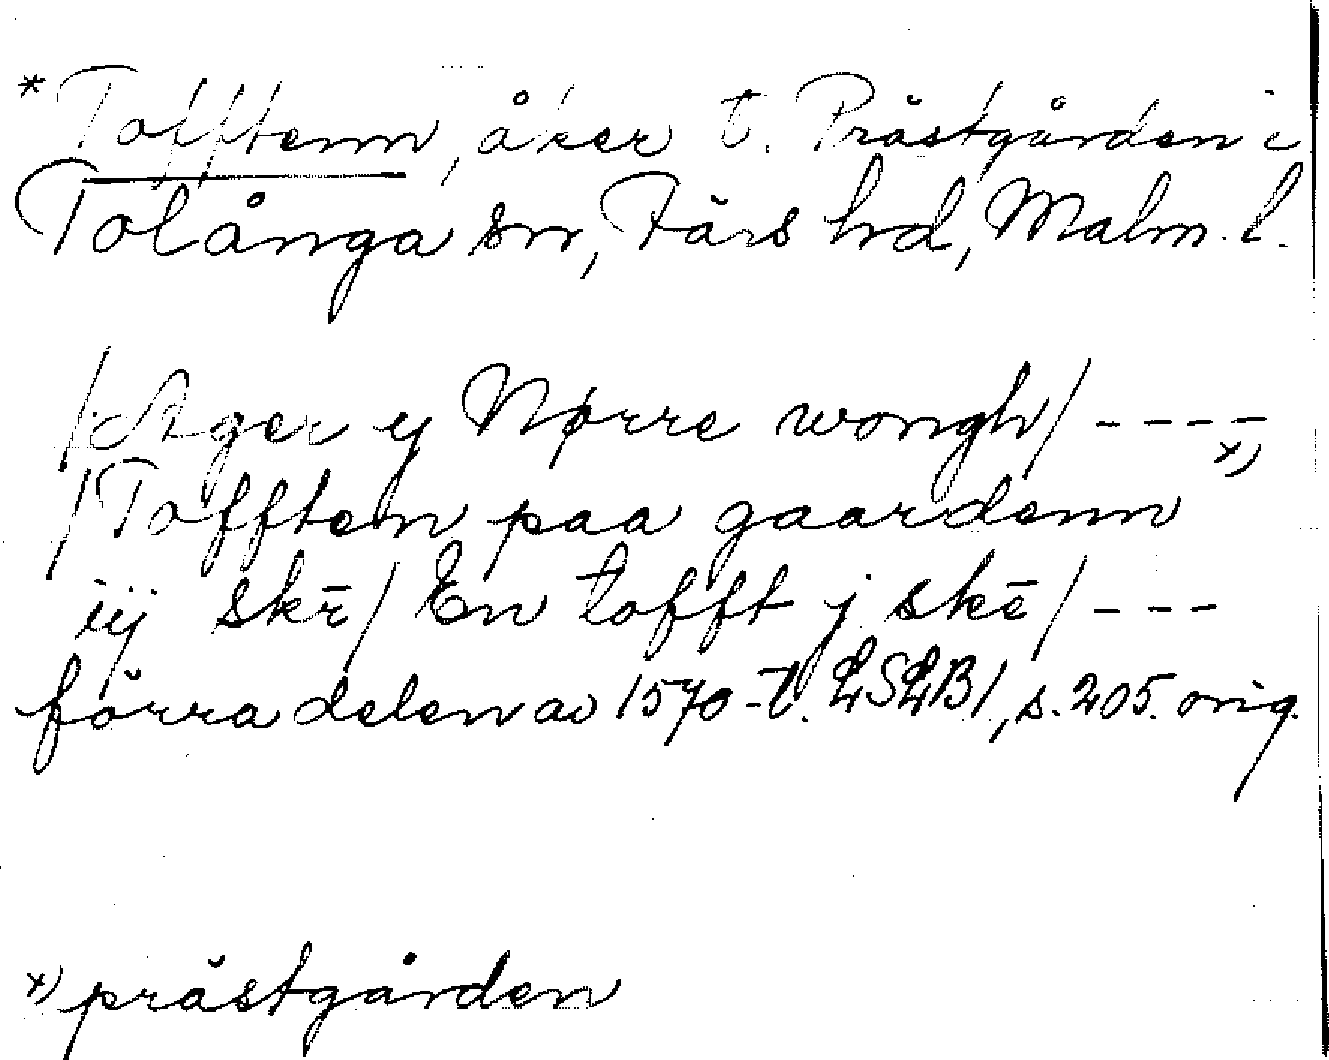 * Tofftenn, åker t. Prästgården i
Tolånga sn, Färs hd, Malm. l.
/Ager y Nørre wongh/ ----
/Tofften paa gaardenn x)
iij skē/ En tofft j skē/ ---
förra delen av 1570-t. LSLB 1, s. 205. orig.
x) prästgården